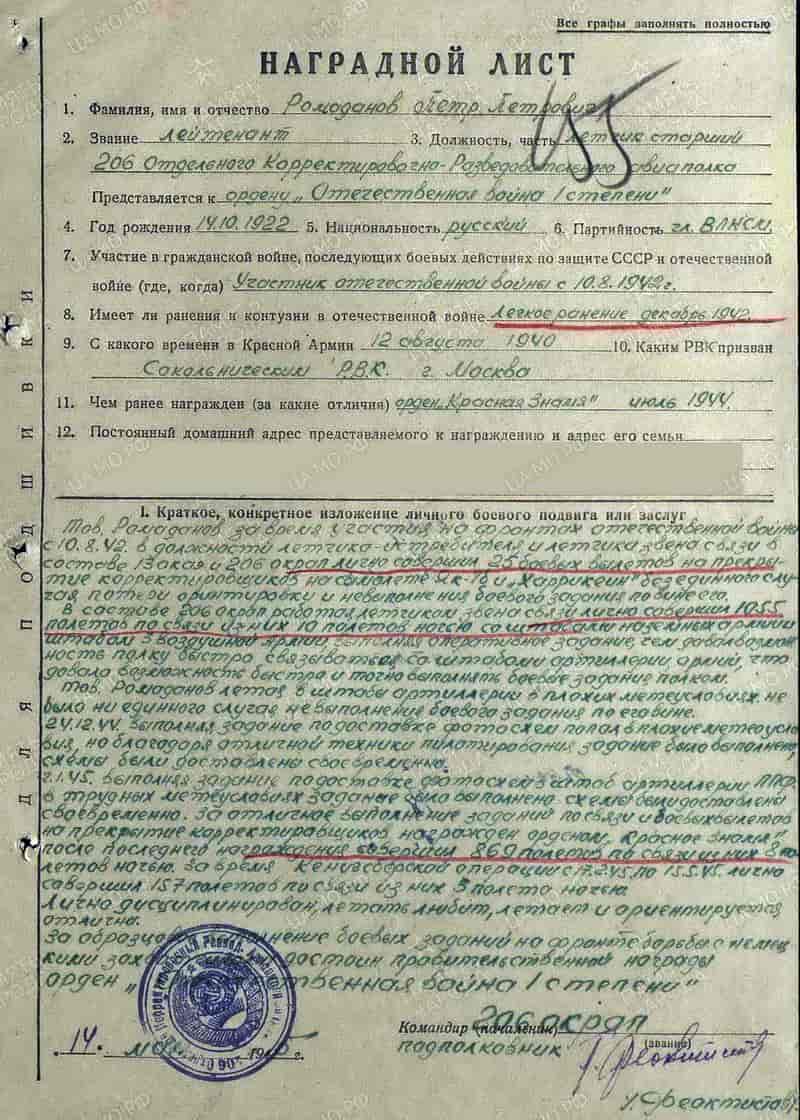 Все графы заполнять полностью
НАГРАДНОЙ ЛИСТ
455
1. Фамилия, имя и отчество Ромоданов Петр Петрович
2. Звание лейтенант 3. Должность, часть летчик старший
206 Отдельного Корректировочно-Разведовательного авиаполка
Представляется к ордену „Отечественная война I степени"
4. Год рождения 14.10.1922 5. Национальность русский 6. Партийность чл. ВЛКСМ
7. Участие в гражданской войне, последующих боевых действиях по защите СССР и отечественной
войне (где, когда) Участник отечественной войны с 10.8.1942г.
8. Имеет ли ранения и контузии в отечественной войне Легкое ранение декабрь 1942.
9. С какого времени в Красной Армии 12 августа 1940 10. Каким РВК призван
Сокольническим РВК г. Москва
11. Чем ранее награжден (за какие отличия) орден „Красная Знамя" июль 1944.
12. Постоянный домашний адрес представляемого к награждению и адрес его семьи
I. Краткое, конкретное изложение личного боевого подвига или заслуг
Тов. Ромоданов за время участия на фронтах отечественной войны
с 10.8.42. в должности летчика-истребителя и летчика звена связи в
составе 13 окаэ и 206 окрап лично совершил боевых вылетов на прикры-
тие корректировщиков на самолете Як-1б и „Харрикейн" без единного слу-
чая потери ориентировки и невыполнения боевого задания по вине его.
В составе 206 окрап работая летчиком звена связи лично совершил 1055
полетов по связи из них 10 полетов ночью со штабами наземных армии и
штабом 3 воздушной армии выполняя оперативное задание, чем давал возмож-
ность полку быстро связываться со штабами артиллерии армий, что
давало возможность быстро и точно выполнять боевые задания полком.
Тов. Ромоданов летая в штабы артиллерии в плохих метеусловиях не
было ни единного случая невыполнения боевого задания по его вине.
24.12.44. выполняя задание по доставке фотосхем попал в плохие метеоусло-
вия, но благодаря отличной техники пилотирования задание было выполнено,
схемы были доставлены своевременно.
2.1.45. выполняя задание по доставке фотосхем в штаб артиллерии
в трудных метеусловиях задание было выполнено схемы были доставлены
своевременно. За отличное выполнение заданий по связи и боевых вылетов
на прекрытие корректировщиков награжден орденом „Красное Знамя"
после последнего награждения совершил 869 полетов по связи из них 8 по-
летов ночью. За время Кенигсбергской операции с по лично
совершил 157 полетов по связи из них 3 полета ночью.
Лично дисциплинирован, летать любит, летает и ориентируется
отлично.
За образцовое выполнение боевых заданий на фронте борьбы с немец-
кими достоин правительственной награды
орден „ственная война I степени"
Командир (начальник) 206 окрап
(звание)
подполковник
14. 194 г.
/Феоктистов/
ДЛЯ ПОДШИВКИ
ЦА МО.РФ